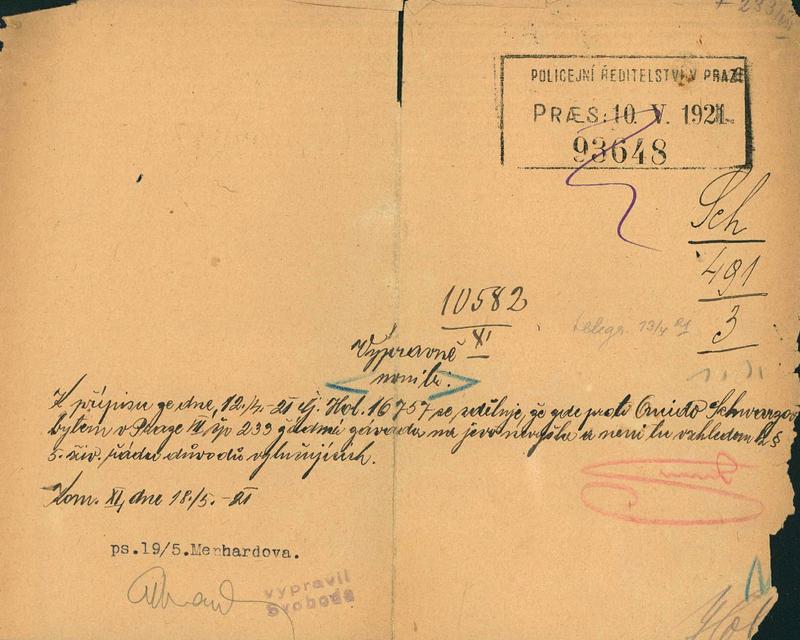 POLICEJNÍ ŘEDITELSTVÍ V PRAZE
PRÆS: 10. V. 1921.
93648
Sch
491
3
10582
XI
telegr. 13/V 21
Výpravně
není tu.
K přípisu ze dne 12./4.-21 čj. Hol. 16757 se sděluje, že zde proti Quido Schwarzovi
bytem v Praze čp 233 žádná závada na jevo nevyšla a není tu vzhledem k §
5. živ. řádu důvodů vylučujících.
Kom. XI, dne 18./5. -21
ps.19/5.Menhardova.
vypravil
Svoboda